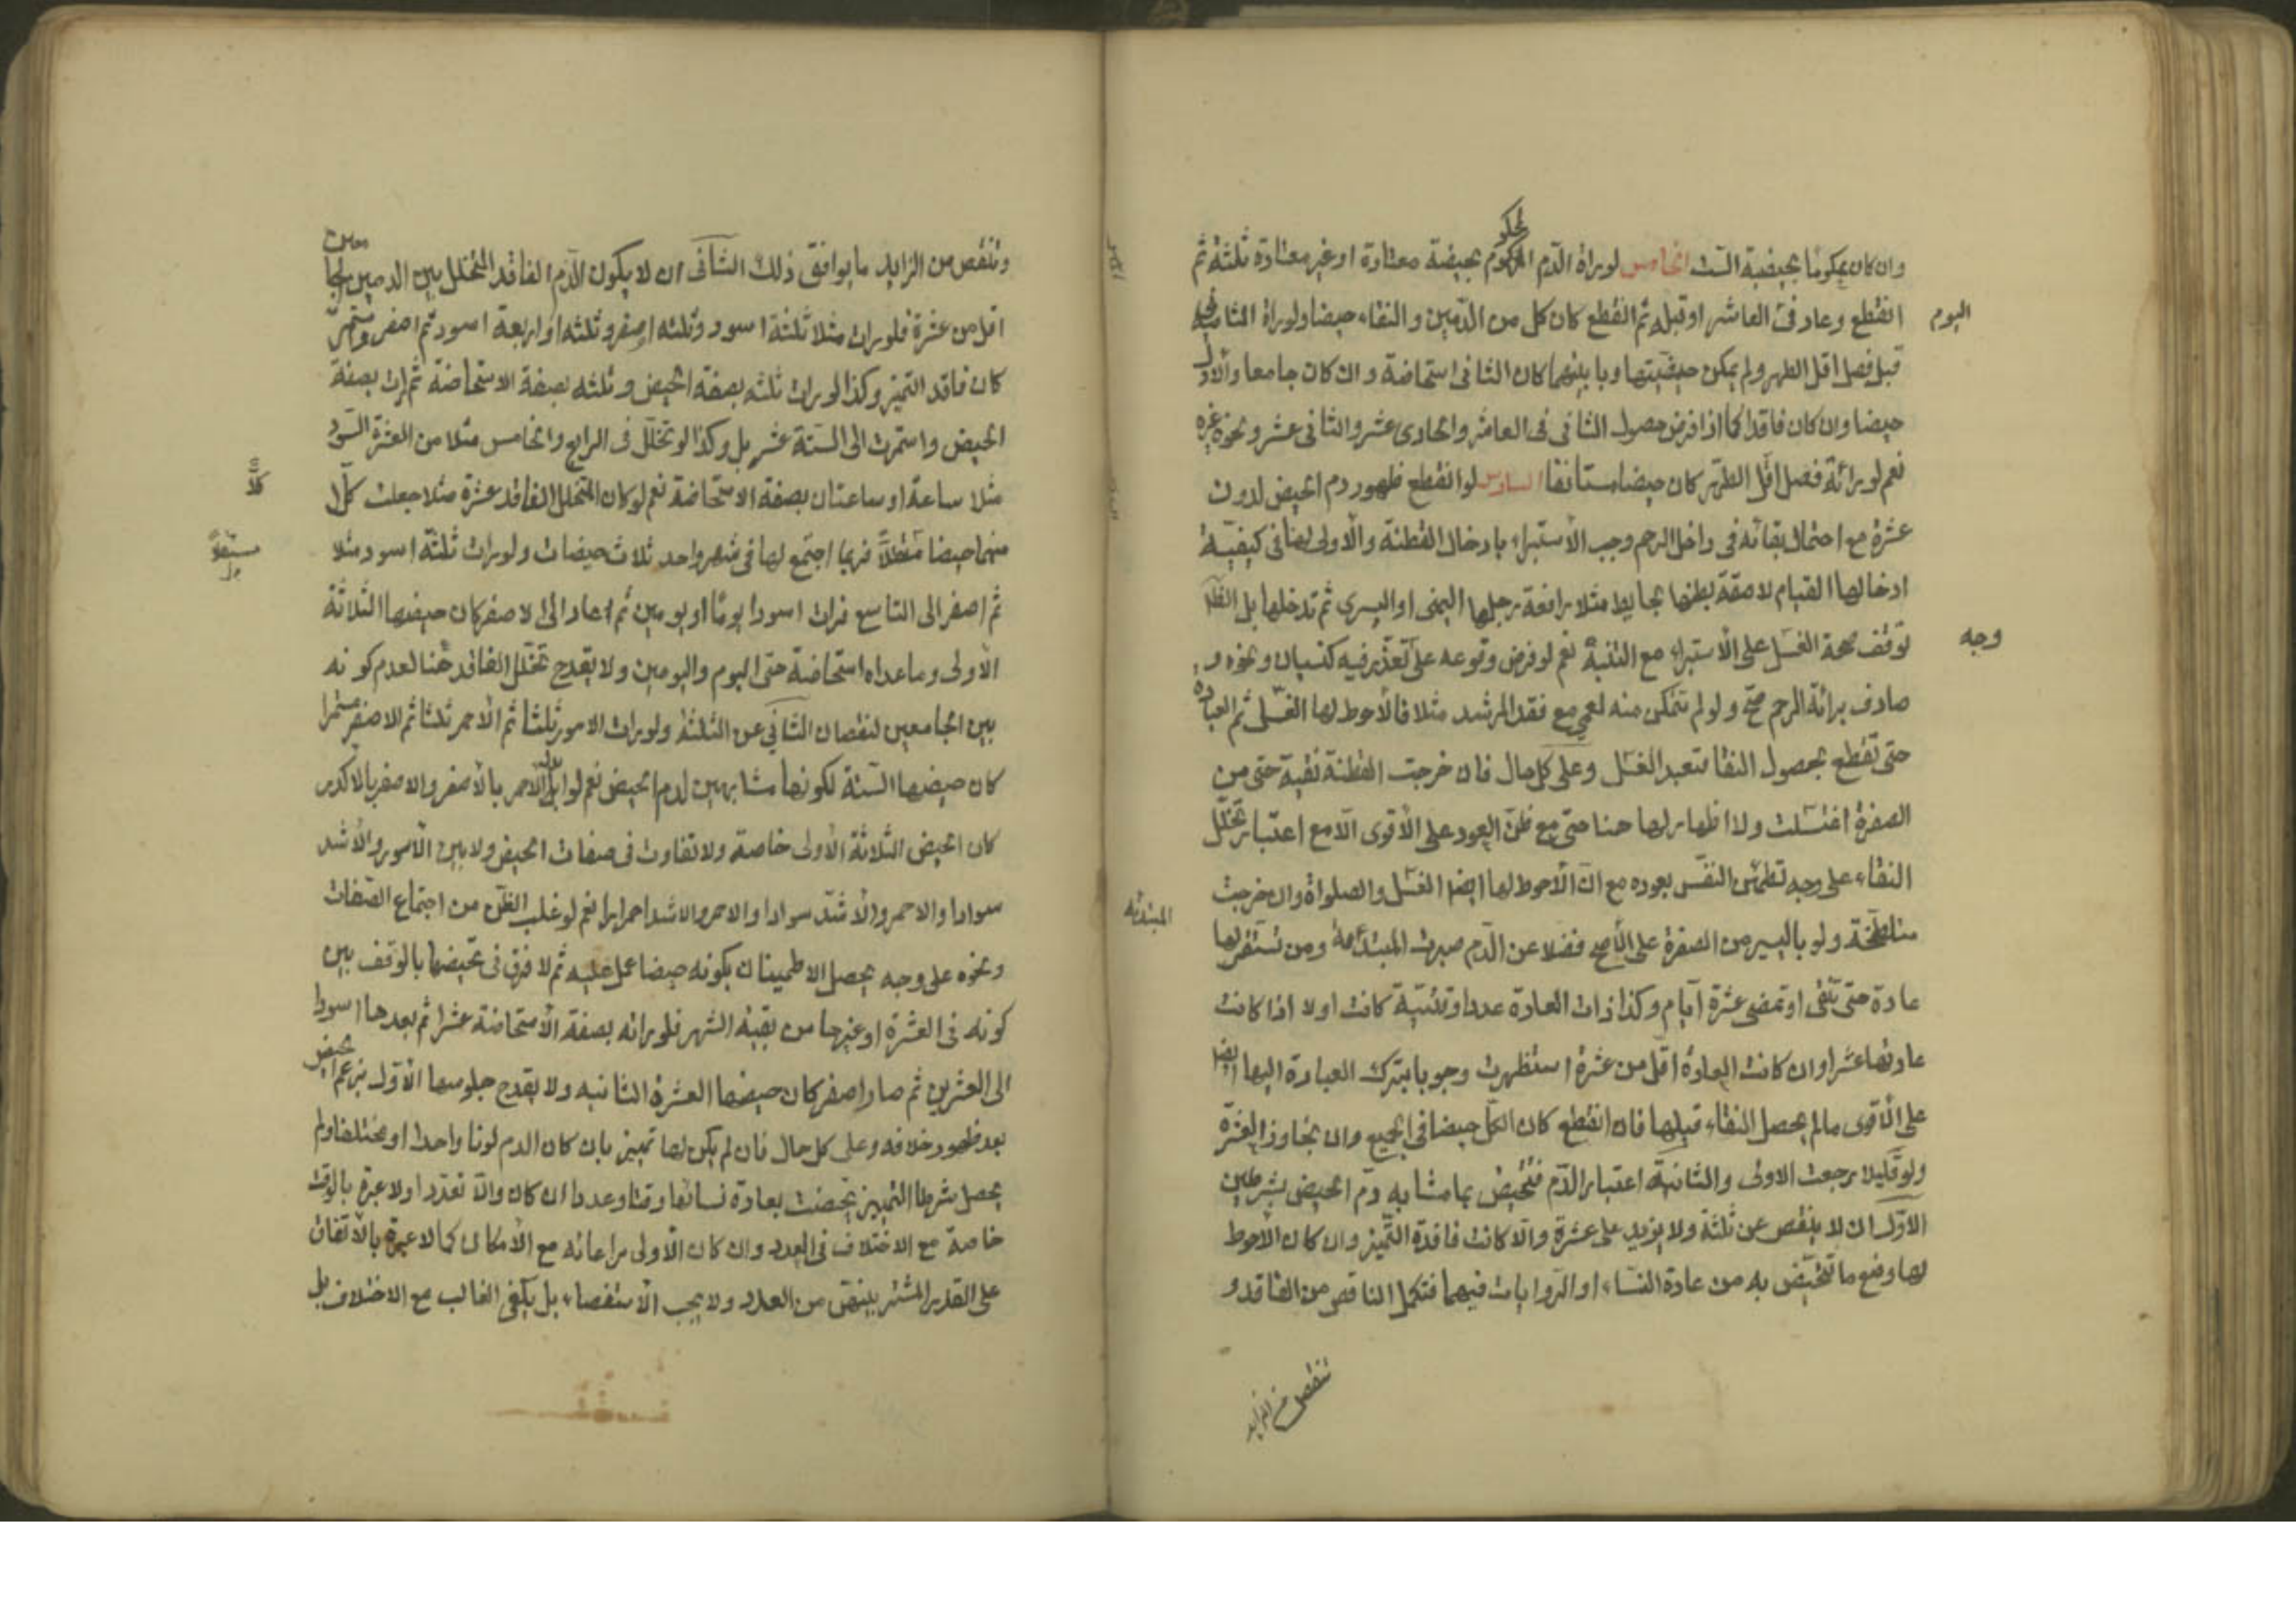 وان كان محكوما بحيضية الست الخامس لو رأة الدم المحكوم بحيضية معتادة او غير معتادة ثلثة ثم
انقطع وعاد في العاشر او قبله ثم انقطع كان كل من الدمين والنقاء حيضا ولو راة الثانية
اليوم
قبل فصل اقل الطهر ولم يمكن حيضيتها وما بينهما كان الثاني استحاضة وان كان جامعا والاول
حيضا وان كان فاقدا كما اذا فرض حصول الثاني في العاشر والحادي عشر والثاني عشر ونحوه غيره
نعم لو رأته فصل اقل الطهر كان حيضا مستانفا السادس لو انقطع ظهور دم الحيض لدون
عشرة مع احتمال بقائه في داخل الرحم وجب الاستبراء بادخال القطنة والاولى لها في كيفية
ادخالها القيام لاصقة بطنها بحايط مثلا رافعة رجلها اليمنى او اليسرى ثم تدخلها بل الظ
وجه
توقف صحة الغسل على الاستبراء مع التنبه نعم لو فرض وقوعه على تعذر فيه كنسيان ونحوه و
صادف برائة الرحم صح ولو لم تتمكن منه لعمى مع فقد المرشد مثلا فالاحوط لها الغسل ثم العبادة
حتى تقطع بحصول النقا فتعيد الغسل وعلى كل حال فان خرجت القطنة نقية حتى من
الصفرة اغتسلت ولا اظهار لها هنا حتى مع ظن العود على الاقوى الا مع اعتبار تخلل
النقاء على وجه تطمئن النفس بعوده مع ان الاحوط لها ايضا الغسل والصلواة وان خرجت
متلطخة ولو باليسير من الصفرة على الاصح فضلا عن الدم صبرت المبتدئة ومن تستقر لها
المبتدئه
عادة حتى تنقى او تمضى عشرة ايام وكذا ذات العادة عددا وقتية كانت اولا اذا كانت
عادتها عشرا وان كانت العادة اقل من عشرة استظهرت وجوبا بترك العبادة اليها ايضا
على الاقوى ما لم يحصل النقاء قبلها فان انقطع كان الكل حيضا في الجميع وان تجاوز العشرة
ولو قليلا رجعت الاولى والثانية اعتبار الدم فتحيض بما شابه دم الحيض بشرطين
الاول ان لا ينقص عن ثلثة ولا يزيد على عشرة والا كانت فاقدة التميز وان كان الاحوط
لها وضع ما تتحيض به من عادة النساء او الروايات فيهما فتكمل الناقص من الفاقد و
تنقص من الزايد
وتنقص من الزايد ما يوافق ذلك الثاني ان لا يكون الدم الفاقد المتخلل بين الدمين الجامعين
اقل من عشرة فلو رات مثلا ثلثة اسود وثلثه اصفر وثلثه او اربعة اسود ثم اصفر واستمر
كان فاقد التميز وكذا لو رات ثلثه بصفة الحيض وثلثه بصفة الاستحاضة ثم رات بصفة
الحيض واستمرت الى الستة عشر بل وكذا لو تخلل في الرابع والخامس مثلا من العشرة السود
مثلا ساعة او ساعتان بصفة الاستحاضة نعم لو كان المتخلل الفاقد عشرة مثلا جعلت كلا
كلا
منهما حيضا مستقلا فربما اجتمع لها في شهر واحد ثلاث حيضات ولو رات ثلثة اسود مثلا
مستقلا
ثم اصفر الى التاسع فرات اسود يوما او يومين ثم عاد الى الاصفر كان حيضها الثلاثة
الاولى وما عداه استحاضة حتى اليوم واليومين ولا يقدح تخلل الفاقد هنا لعدم كونه
بين الجامعين لنقصان الثاني عن الثلثة ولو رات الاسود ثلثا ثم الاحمر ثلثا ثم الاصفر مستمرا
كان حيضها الستة لكونها مشابهين لدم الحيض نعم لو ابدل الاحمر بالاصفر والاصفر بالاكدر
كان الحيض الثلاثة الاولى خاصة ولا تفاوت في صفات الحيض ولا بين الاسود والاشد
سوادا والاحمر والاشد سوادا والاحمر والاشد احمرارا نعم لو غلب الظن من اجتماع الصفات
ونحوه على وجه يحصل الاطمينان بكونه حيضا عمل عليه ثم لا فرق في تحيضها بالوقف بين
كونه في العشرة او غيرها من بقية الشهر فلو راته بصفة الاستحاضة عشرا ثم بعدها اسودا
الى العشرين ثم صار اصفر كان حيضها العشرة الثانيه ولا يقدح جلوسها الاول بزعم الحيض
بعد ظهور خلافه وعلى كل حال فان لم يكن لها تمييز بان كان الدم لونا واحدا او مختلفا ولم
يحصل شرطا التمييز تحيضت بعادة نسائها وقتا وعددا ان كان والا تعددا ولا عبرة بالوقت
خاصة مع الاختلاف في العدد وان كان الاولى مراعاته مع الامكان كما لا عبرة بالاتفاق
على القدر المشترك بينهن من العدد ولا يجب الاستقصاء بل يكفي الغالب مع الاختلاف بل